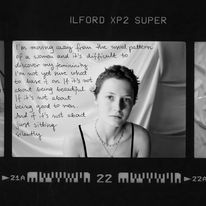 ILFORD XP2 SUPER
I'm moving away from the usual pattern
of a women and it's difficult to
discover my femininity
I'm not yet sure what
to base it on if it's not
about being beautiful
If it's not about
being good to men
And if it's not about
just sitting
silently
21A 22 22A